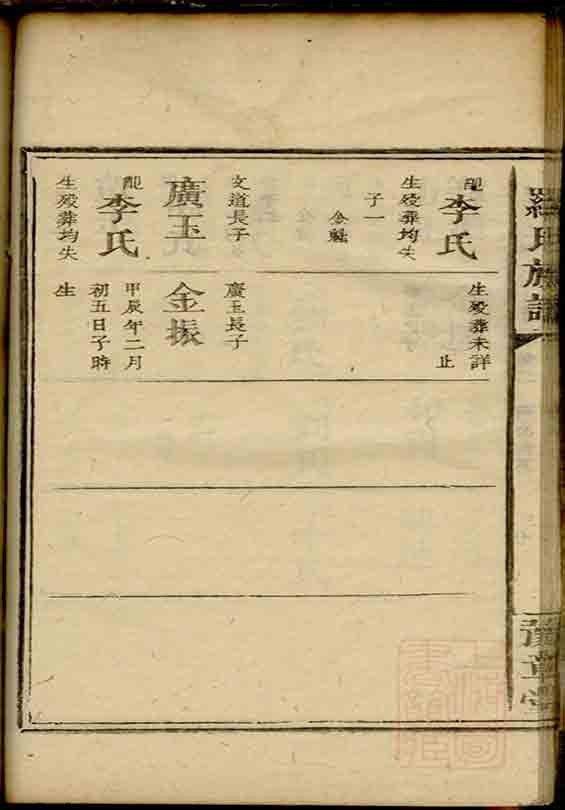 羅氏族譜
豫章堂
配李氏
生殁葬均失
子一
金魁
文道長子
廣玉
配李氏
生殁葬均失
生殁葬未詳
止
廣玉長子
金振
甲辰年二月
初五日子時
生